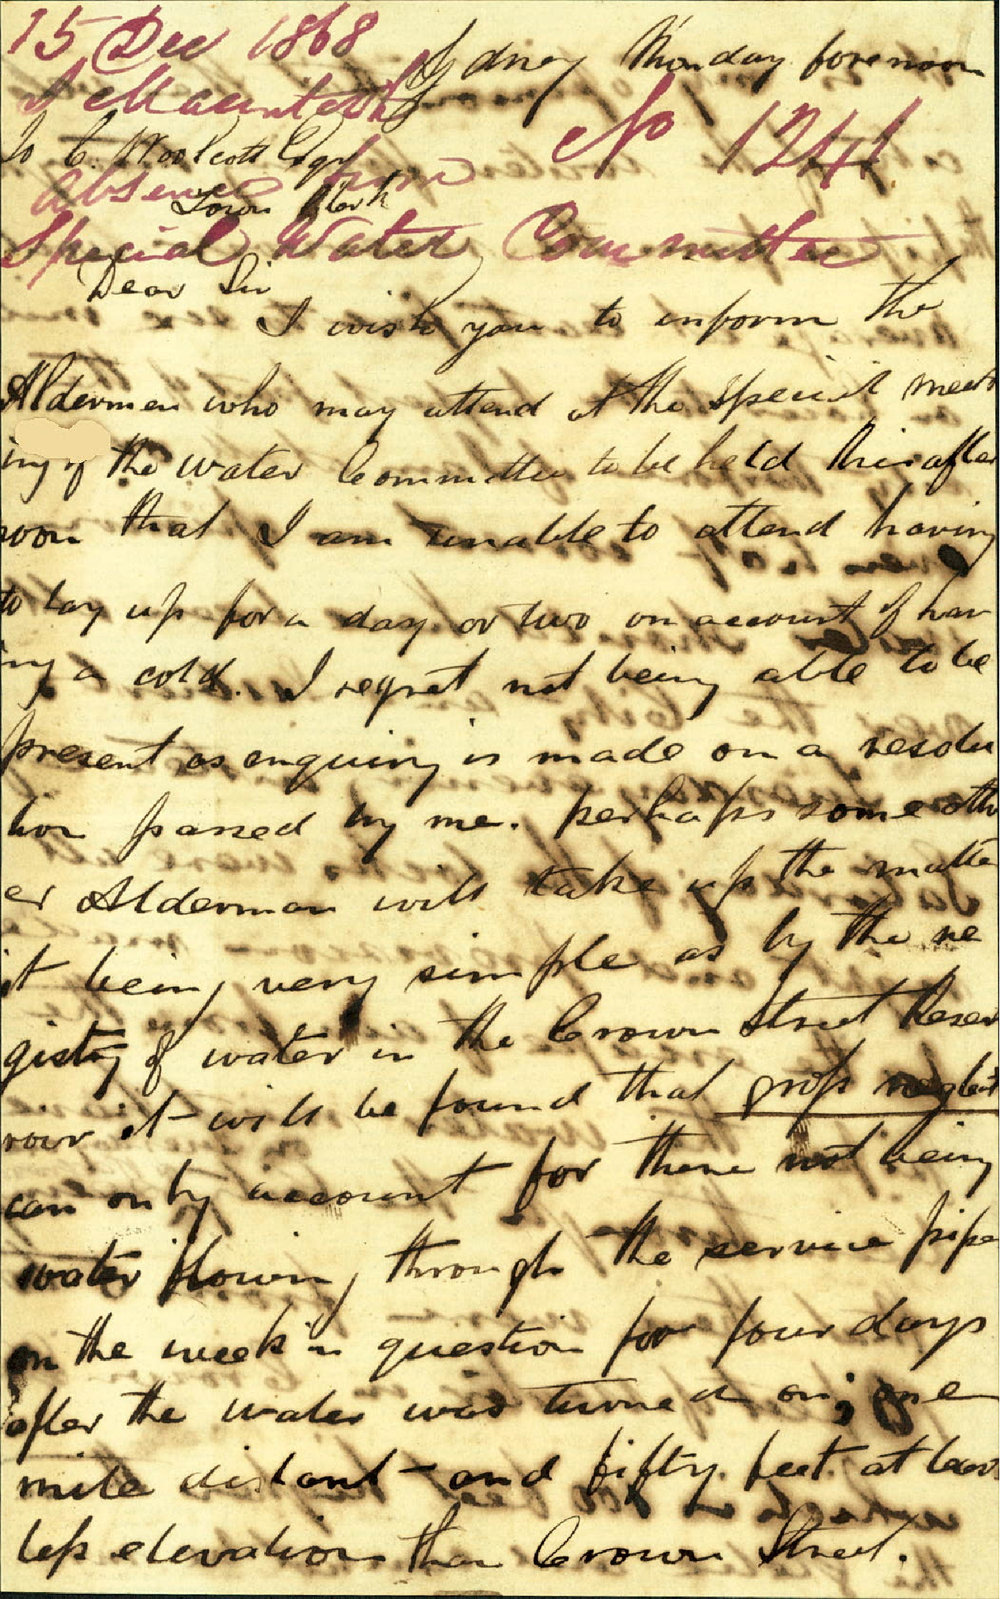 15 Dec 1868
Sydney Monday forenoon
J Macintosh
No 1241
To C. Woolcott Esqr
absence from
Town Clerk
Special Water Committee
Dear Sir
I wish you to inform the
Aldermen who may attend at the special meet
ing of the water Committee to be held this after
noon that I am unable to attend having
to lay up for a day or two on account of hav
ing a cold. I regret not being able to be
present as enquiry is made on a resolu
tion passed by me. perhaps some oth
er Alderman will take up the matte
it being very simple as by the re
gistry of water in the Crown Street Reser
vour it will be found that gross neglect
can only account for there not being
water flowing through the service pipe
on the week in question for four days
after the water was turned on; one
mile distant - and fifty feet at least
less elevation than Crown Street.